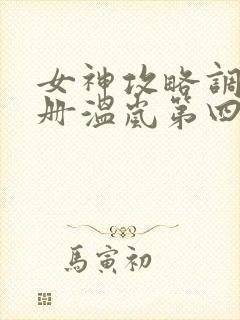 女神攻略調
册溫嵐第四
馬寅初